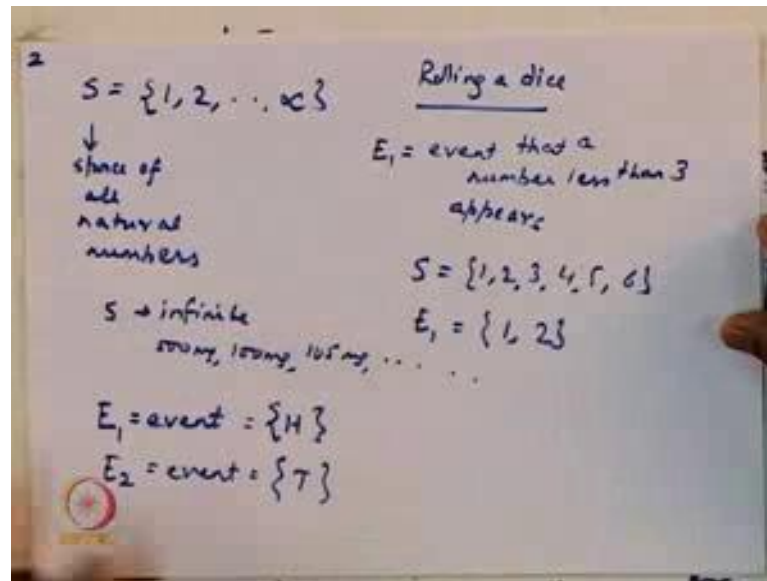 2
S = {1, 2, ..., ∞}
↓
space of
all
natural
numbers
S → infinite
500mg, 100mg, 105mg, ......
E₁ = event = {H}
E₂ = event = {T}
Rolling a dice
E₁ = event that a
number less than 3
appears
S = {1, 2, 3, 4, 5, 6}
E₁ = {1, 2}